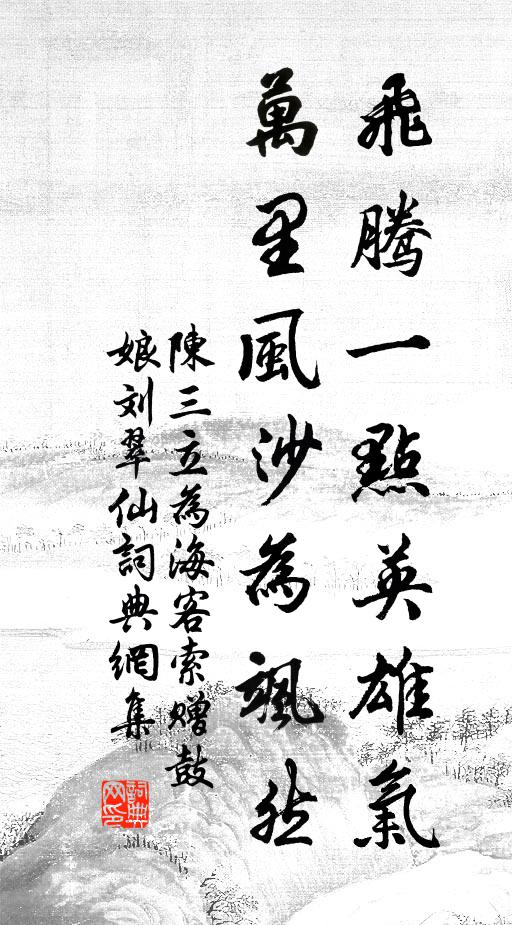 飛騰一點英雄氣
萬里風沙為颯然
陳三立為海客索贈鼓
娘刘翠仙詞典網集
詞典
网印